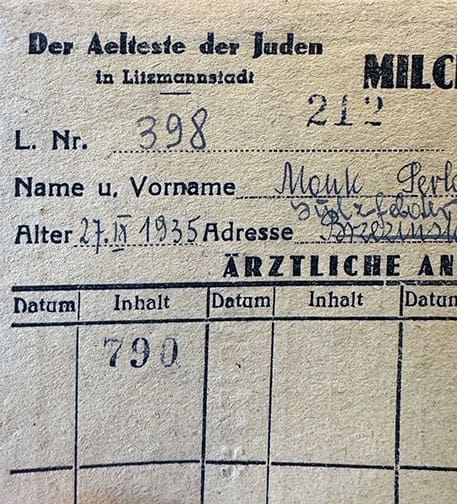 Der Aelteste der Juden
in Litzmannstadt
MILC
212
L. Nr. 398
Name u. Vorname Monk Perl
Alter 27.IX 1935 Adresse
ÄRZTLICHE AN
Datum Inhalt Datum Inhalt Datum
790